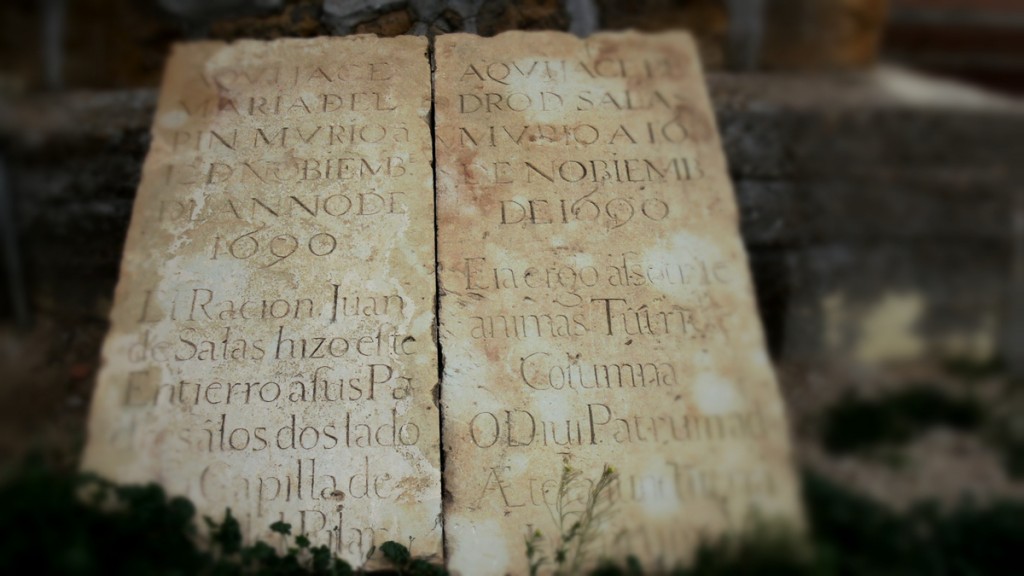 AQVI IACE
MARIA DEL
PIN MVRIO a
12 D NOBIEMB
DEL ANNO DE
1690
El Racion. Juan
de Salas hizo este
Entierro a sus Pa
dres a los dos lado
Capilla de
Pilar
AQVI IACE PE
DRO D SALAS
MVRIO A 16
DE NOBIEMB
DE 1690
Eia ergo
animas
Columna
O Diui Patrum